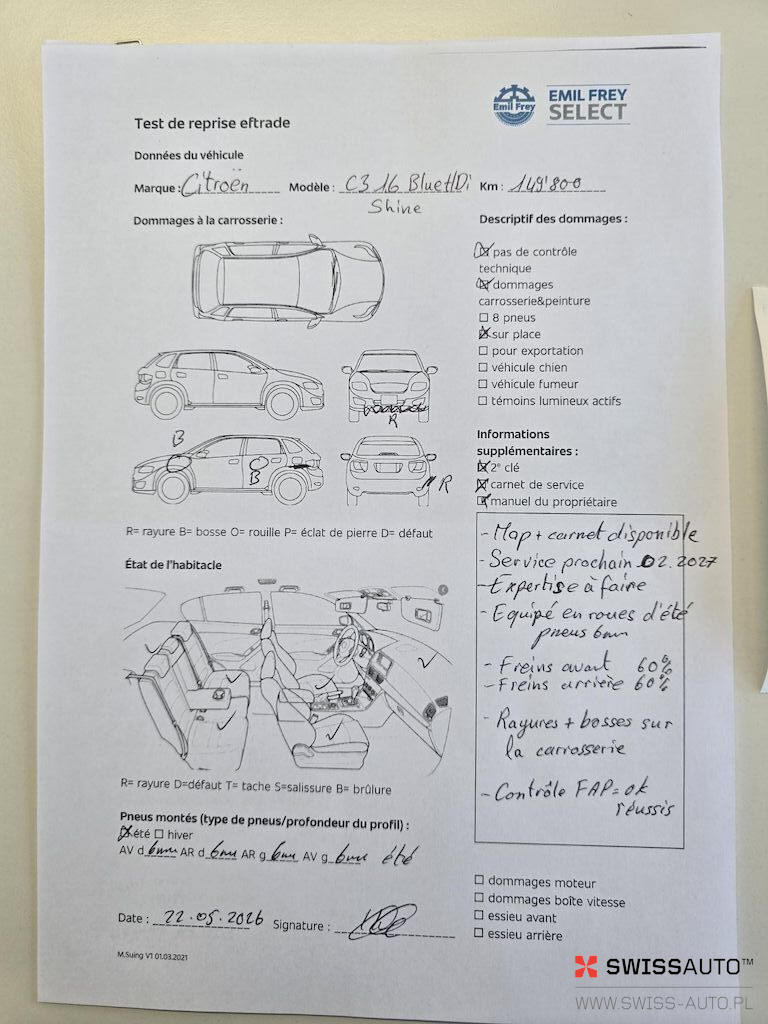 Emil Frey
EMIL FREY
SELECT
Test de reprise eftrade
Données du véhicule
Marque : Citroën Modèle : C3 1.6 BlueHDi Km : 149'800
Shine
Dommages à la carrosserie :
R
B
B
R
R= rayure B= bosse O= rouille P= éclat de pierre D= défaut
Descriptif des dommages :
pas de contrôle
technique
dommages
carrosserie&peinture
8 pneus
sur place
pour exportation
véhicule chien
véhicule fumeur
témoins lumineux actifs
Informations
supplémentaires :
2e clé
carnet de service
manuel du propriétaire
- Map + carnet disponible
- Service prochain 02.2027
- Expertise à faire
- Equipé en roues d'été
pneus 6mm
- Freins avant 60%
- Freins arrière 60%
- Rayures + bosses sur
la carrosserie
- Contrôle FAP = ok
réussis
État de l'habitacle
R= rayure D=défaut T= tache S=salissure B= brûlure
Pneus montés (type de pneus/profondeur du profil) :
été hiver
AV d 6mm AR d 6mm AR g 6mm AV g 6mm été
Date : 22.05.2026 Signature :
M.Suing V1 01.03.2021
dommages moteur
dommages boîte vitesse
essieu avant
essieu arrière
SWISSAUTO™
WWW.SWISS-AUTO.PL